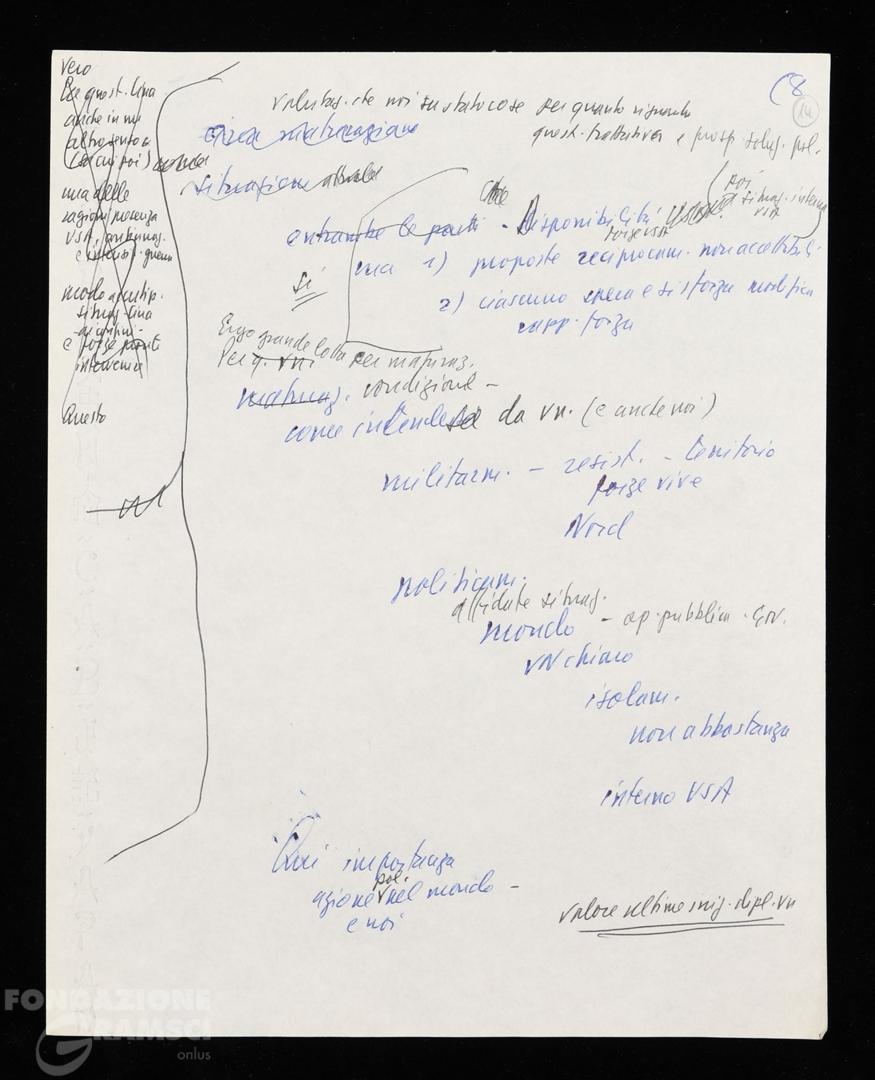 vero
anche in un
altro senso
(e qui poi)
una delle
ragioni presenza
USA
modo
situaz. Cina
e forze pronti
intervenire
Questo
(8
14
noi su stato cose per quanto riguarda
quest. trattativa e prosp. soluz. pol.
circa maturazione
situazione attuale
che
poi
situaz. interna
USA
entrambe le parti - Disponibilità
forze USA
ma 1) proposte reciprocam. non accettabili
sì
2) ciascuno spera e si sforza modifica
rapp. forza
Ergo grande lotta per maturaz.
Per q. VN
maturaz. condizione -
come intendesi da VN. (e anche noi)
militarm. - resist. - territorio
forze vive
Nord
politicam.
situaz.
mondo - op. pubblica - Gov.
VN chiaro
isolam.
non abbastanza
interno USA
Qui importanza
pol.
azione nel mondo -
e noi
valore ultime iniz. dipl. VN
FONDAZIONE
GRAMSCI
onlus